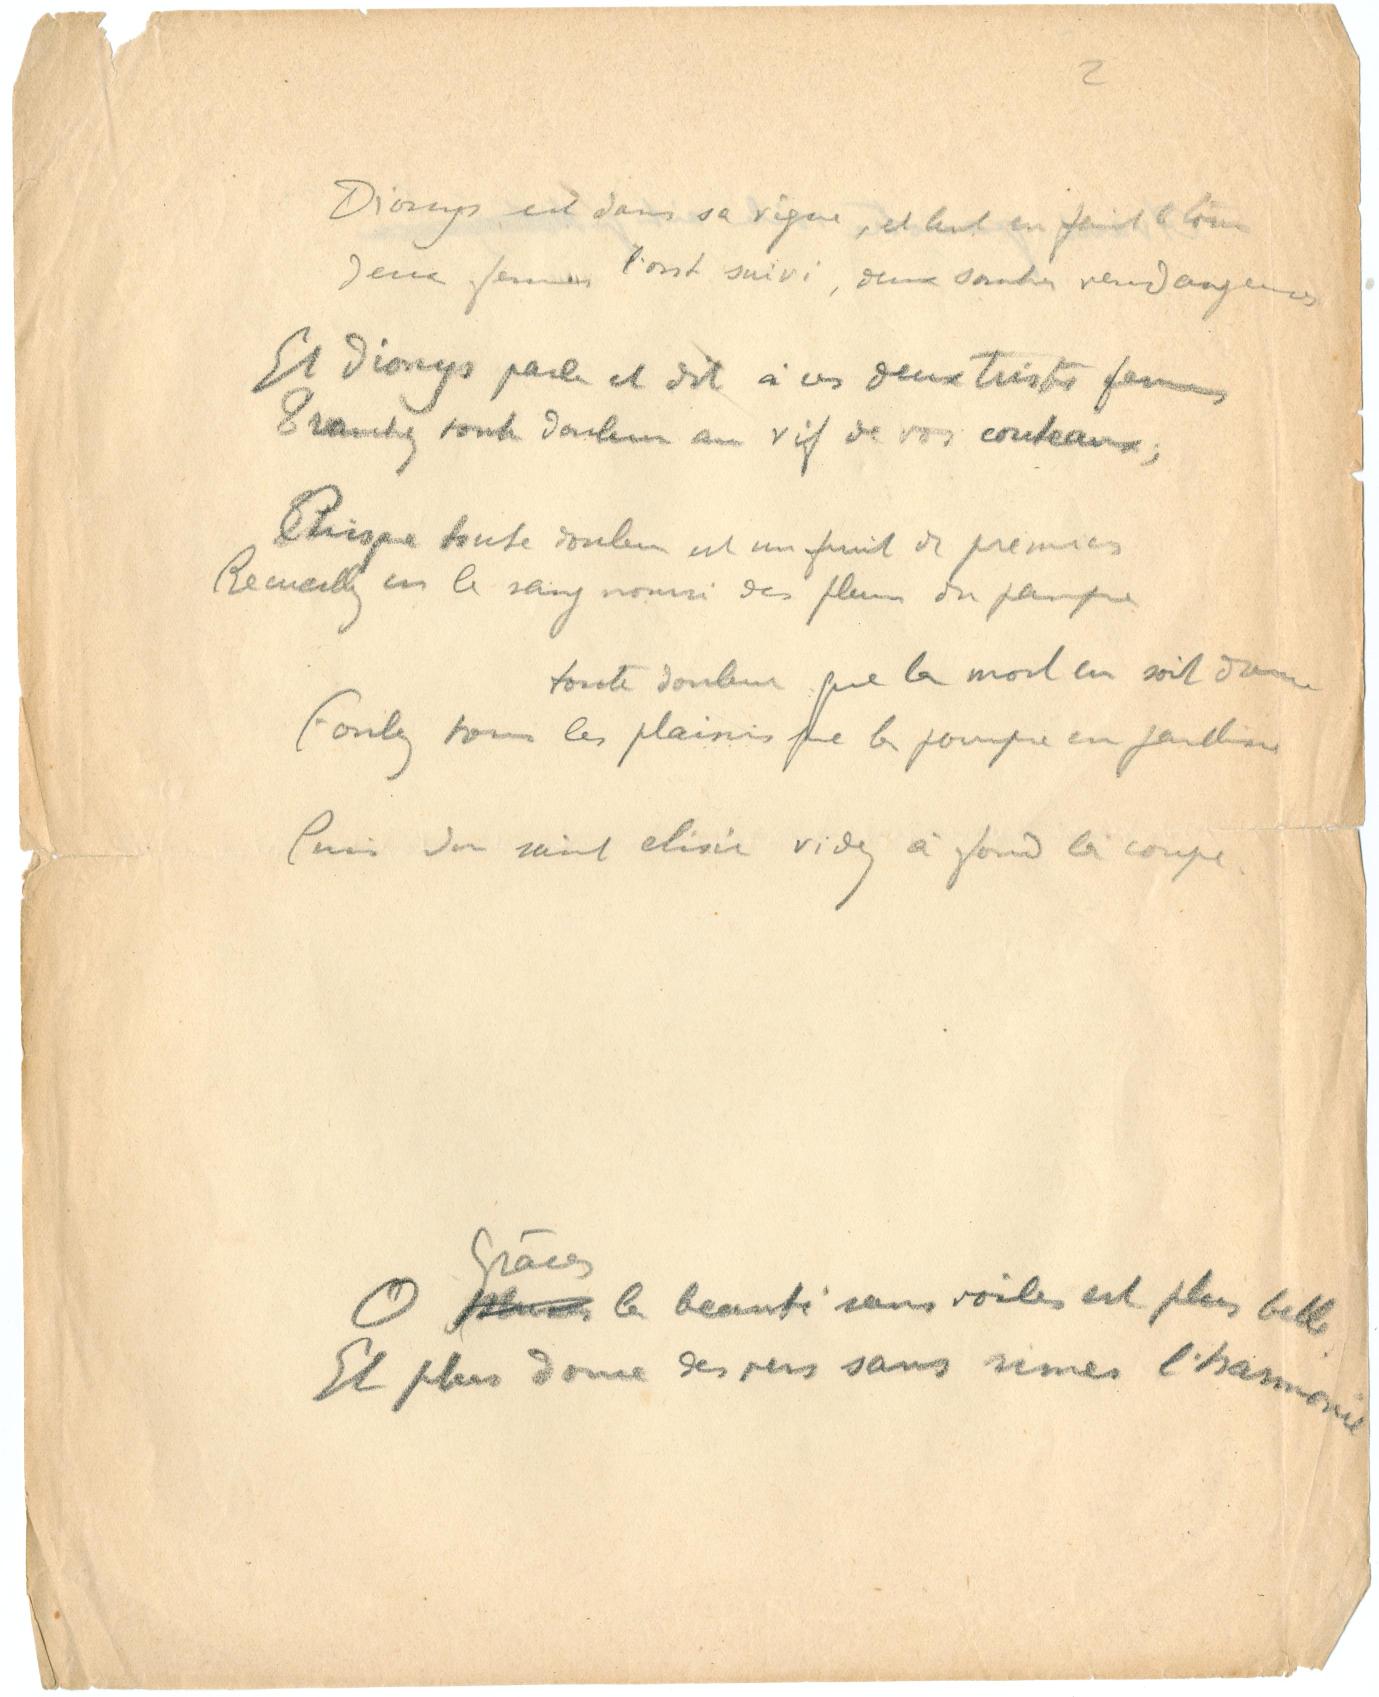 2
Dionys est dans sa vigne, et lent en fait le tour
deux femmes l'ont suivi, deux sombres vendangeuses
Et Dionys parle et dit à ces deux tristes femmes
Tranchez toute douleur au vif de vos couteaux;
Puisque toute douleur est un fruit de
Recueillez en le sang nourri des pleurs du pampre
toute douleur que la mort en soit
Foulez tous les plaisirs que la pourpre en
Puis du saint elixir videz à fond la coupe.
Grâces
O la beauté sans voiles est plus belle
Et plus douce des vers sans rimes l'harmonie